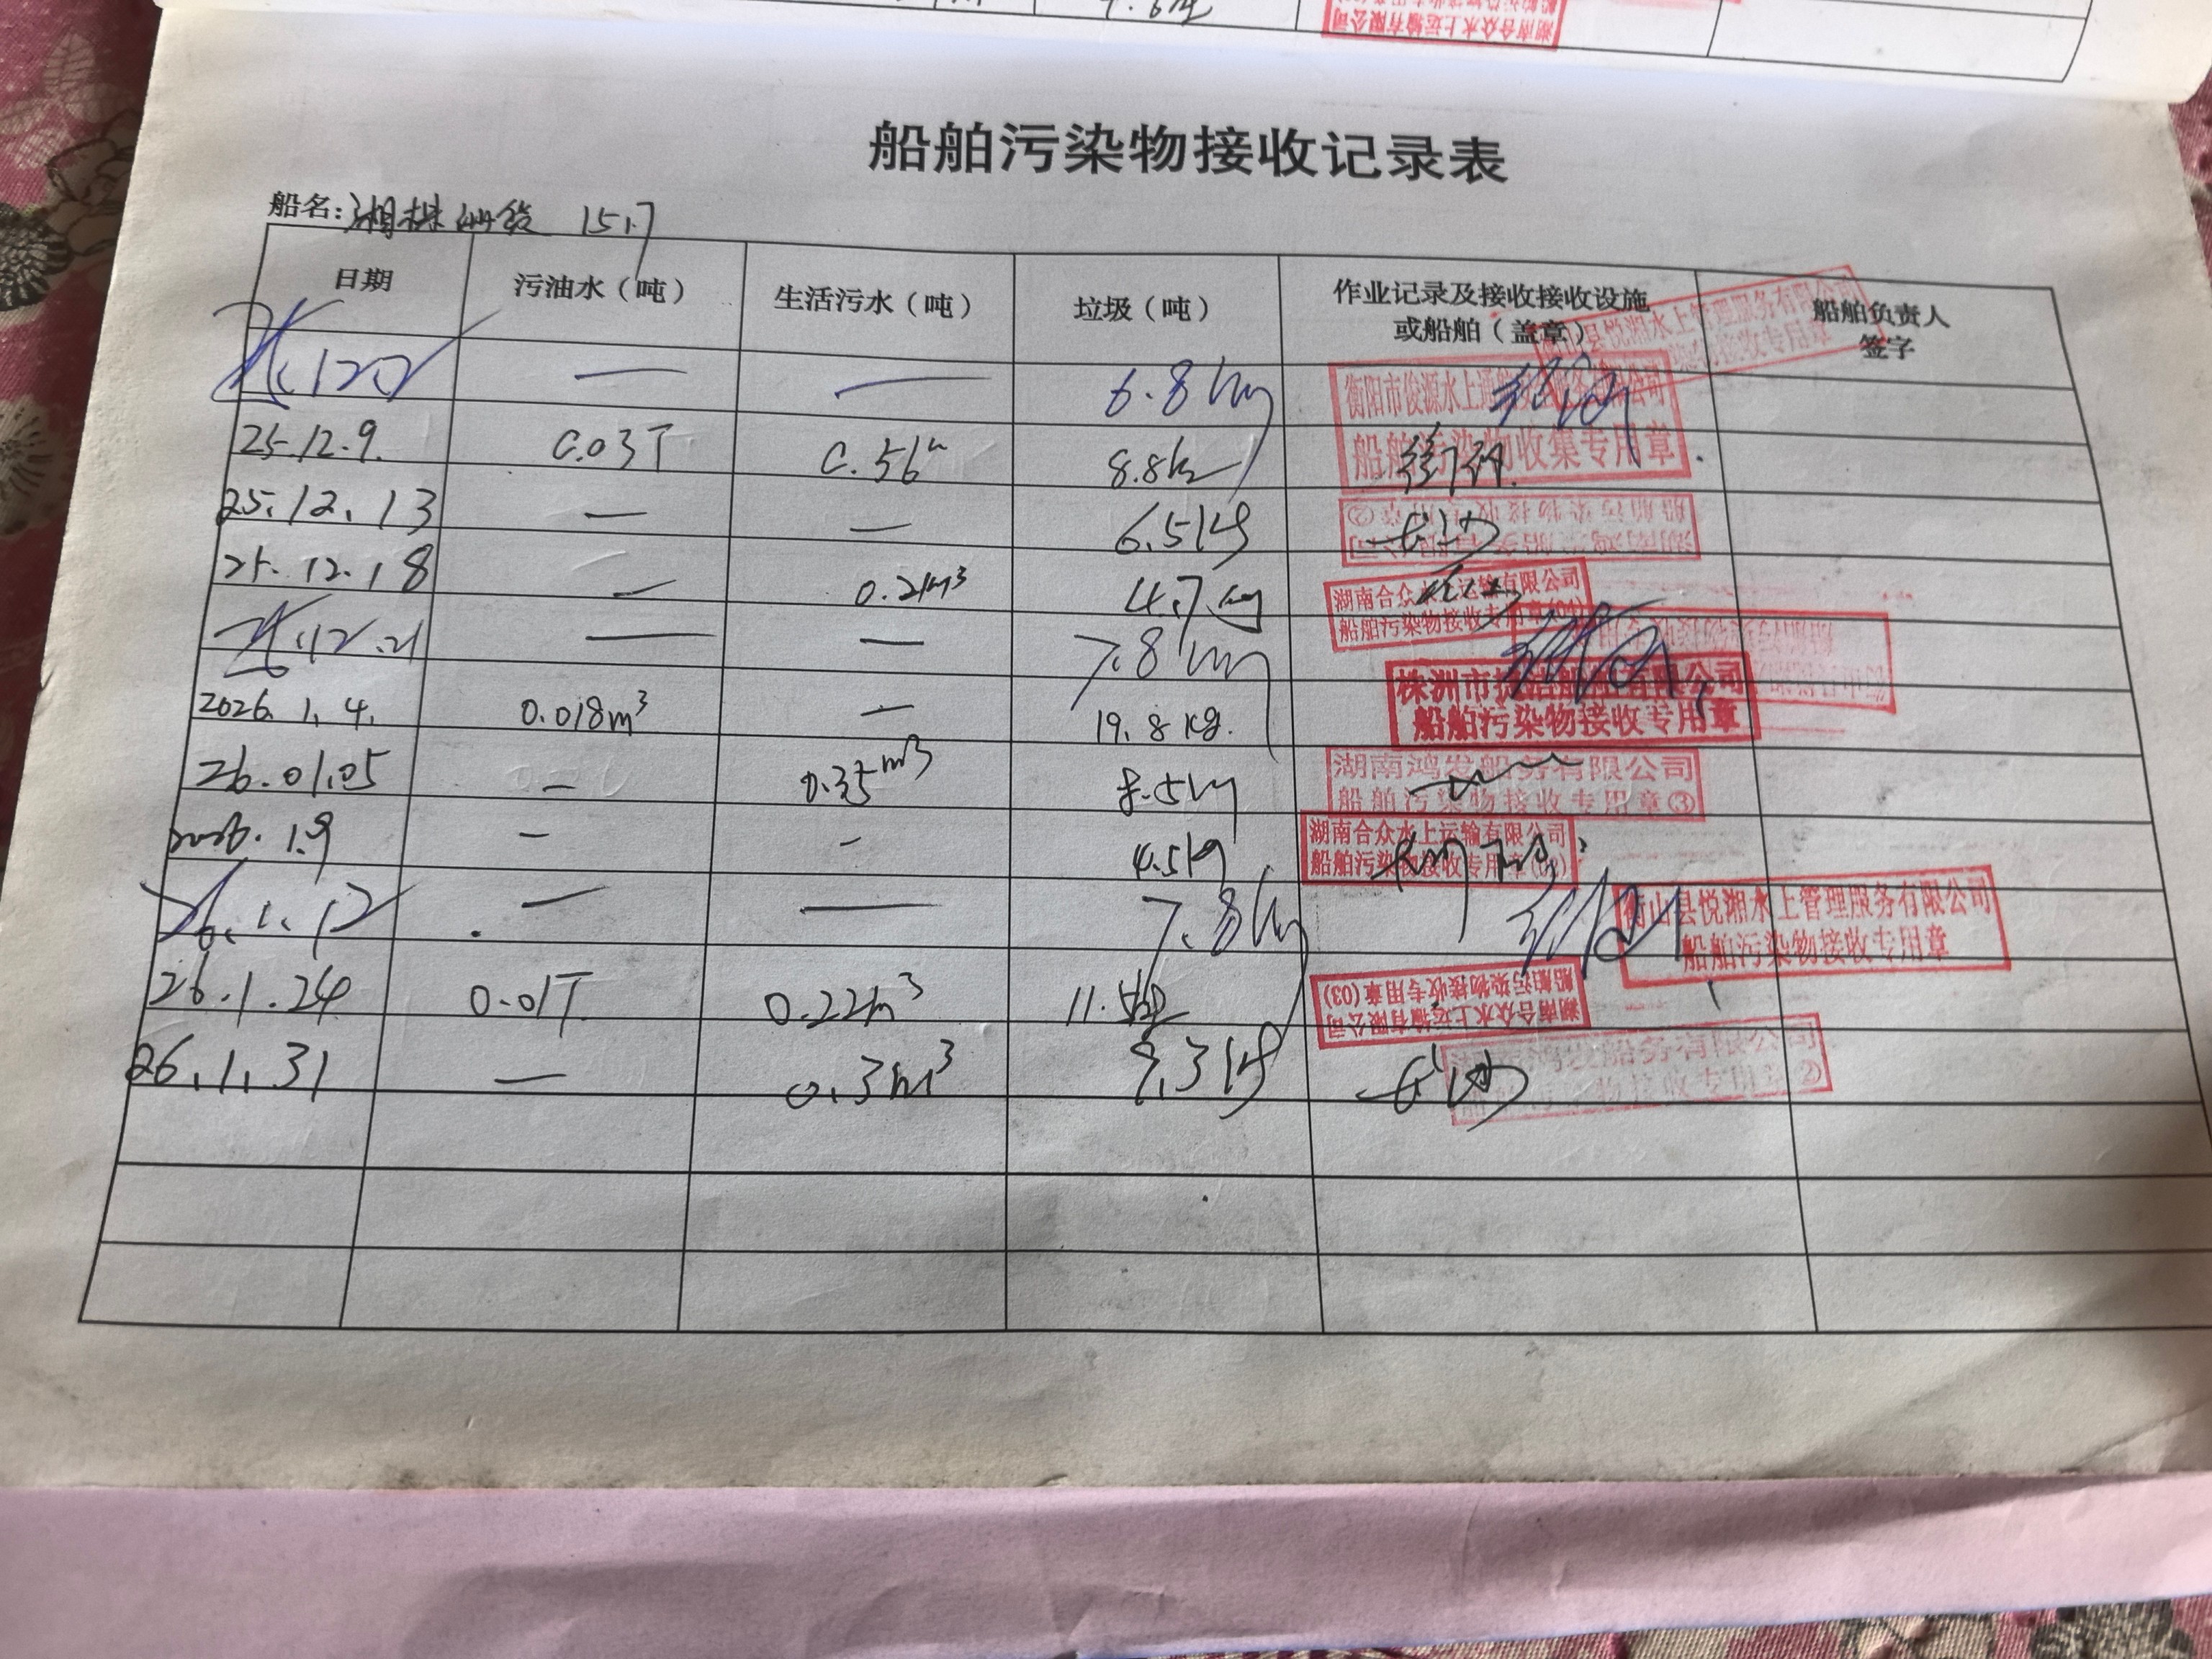 船舶污染物接收记录表
船名:湘株洲货 1517
日期 污油水（吨） 生活污水（吨） 垃圾（吨） 作业记录及接收接收设施或船舶（盖章） 船舶负责人签字
— — 6.8kg
衡山县悦湘水上管理服务有限公司
船舶污染物接收专用章
船舶污染物收集专用章
25.12.9. 0.03T 0.56 8.8kg
25.12.13 — — 6.5kg 长沙
船舶污染物接收专用章②
25.12.18 — 0.21m³ 4.7kg
湖南合众水上运输有限公司
船舶污染物接收专用章(04)
25.12.21 — — 7.8kg
2026.1.4. 0.018m³ — 19.8kg.
株洲市 有限公司
船舶污染物接收专用章
26.01.05 — 0.35m³ 8.5kg
湖南鸿发船务有限公司
船舶污染物接收专用章③
2026.1.9 - - 4.5kg
湖南合众水上运输有限公司
船舶污染物接收专用章
26.1.12 — — 7.8kg
衡山县悦湘水上管理服务有限公司
船舶污染物接收专用章
26.1.24 0.01T 0.22m³
湖南合众水上运输有限公司
船舶污染物接收专用章(03)
26.1.31 — 0.3m³ 9.3kg 长沙
湖南鸿发船务有限公司
船舶污染物接收专用章②